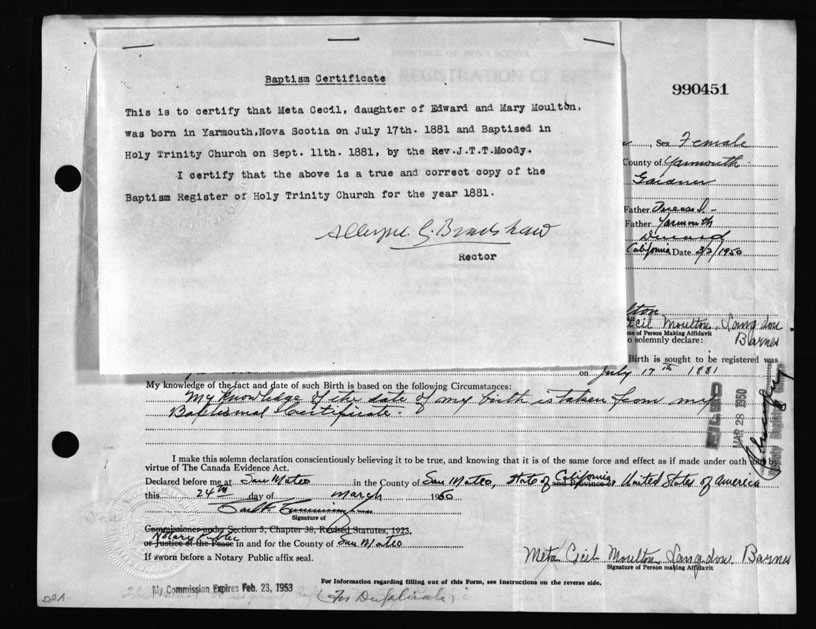 PROVINCE OF NOVA SCOTIA
REGISTRATION OF
990451
Baptism Certificate
This is to certify that Meta Cecil, daughter of Edward and Mary Moulton,
was born in Yarmouth,Nova Scotia on July 17th. 1881 and Baptised in
Holy Trinity Church on Sept. 11th. 1881, by the Rev.J.T.T.Moody.
I certify that the above is a true and correct copy of the
Baptism Register of Holy Trinity Church for the year 1881.
Bradshaw
Rector
Sex Female
County of Yarmouth
Gardner
Father
Father Yarmouth
California Date 3/2/1950
lton
Cecil Moulton, Langdon
of Person Making Affidavit
Barnes
o solemnly declare:
Birth is sought to be registered was
on July 17th 1881
My knowledge of the fact and date of such Birth is based on the following Circumstances:
My knowledge of the date of my birth is taken from my
Baptismal Certificate.
FILED
MAR 28 1950
I make this solemn declaration conscientiously believing it to be true, and knowing that it is of the same force and effect as if made under oath
virtue of The Canada Evidence Act.
Declared before me at San Mateo in the County of San Mateo, State of California and Province of United States of America
this 24th day of March 1950
Signature of
Commissioner under Section 5, Chapter 38, Revised Statutes, 1923,
Notary Public
or Justice of the Peace in and for the County of San Mateo
If sworn before a Notary Public affix seal.
Meta Cecil Moulton Langdon Barnes
Signature of Person making Affidavit
My Commission Expires Feb. 23, 1953
For Information regarding filling out of this Form, see instructions on the reverse side.